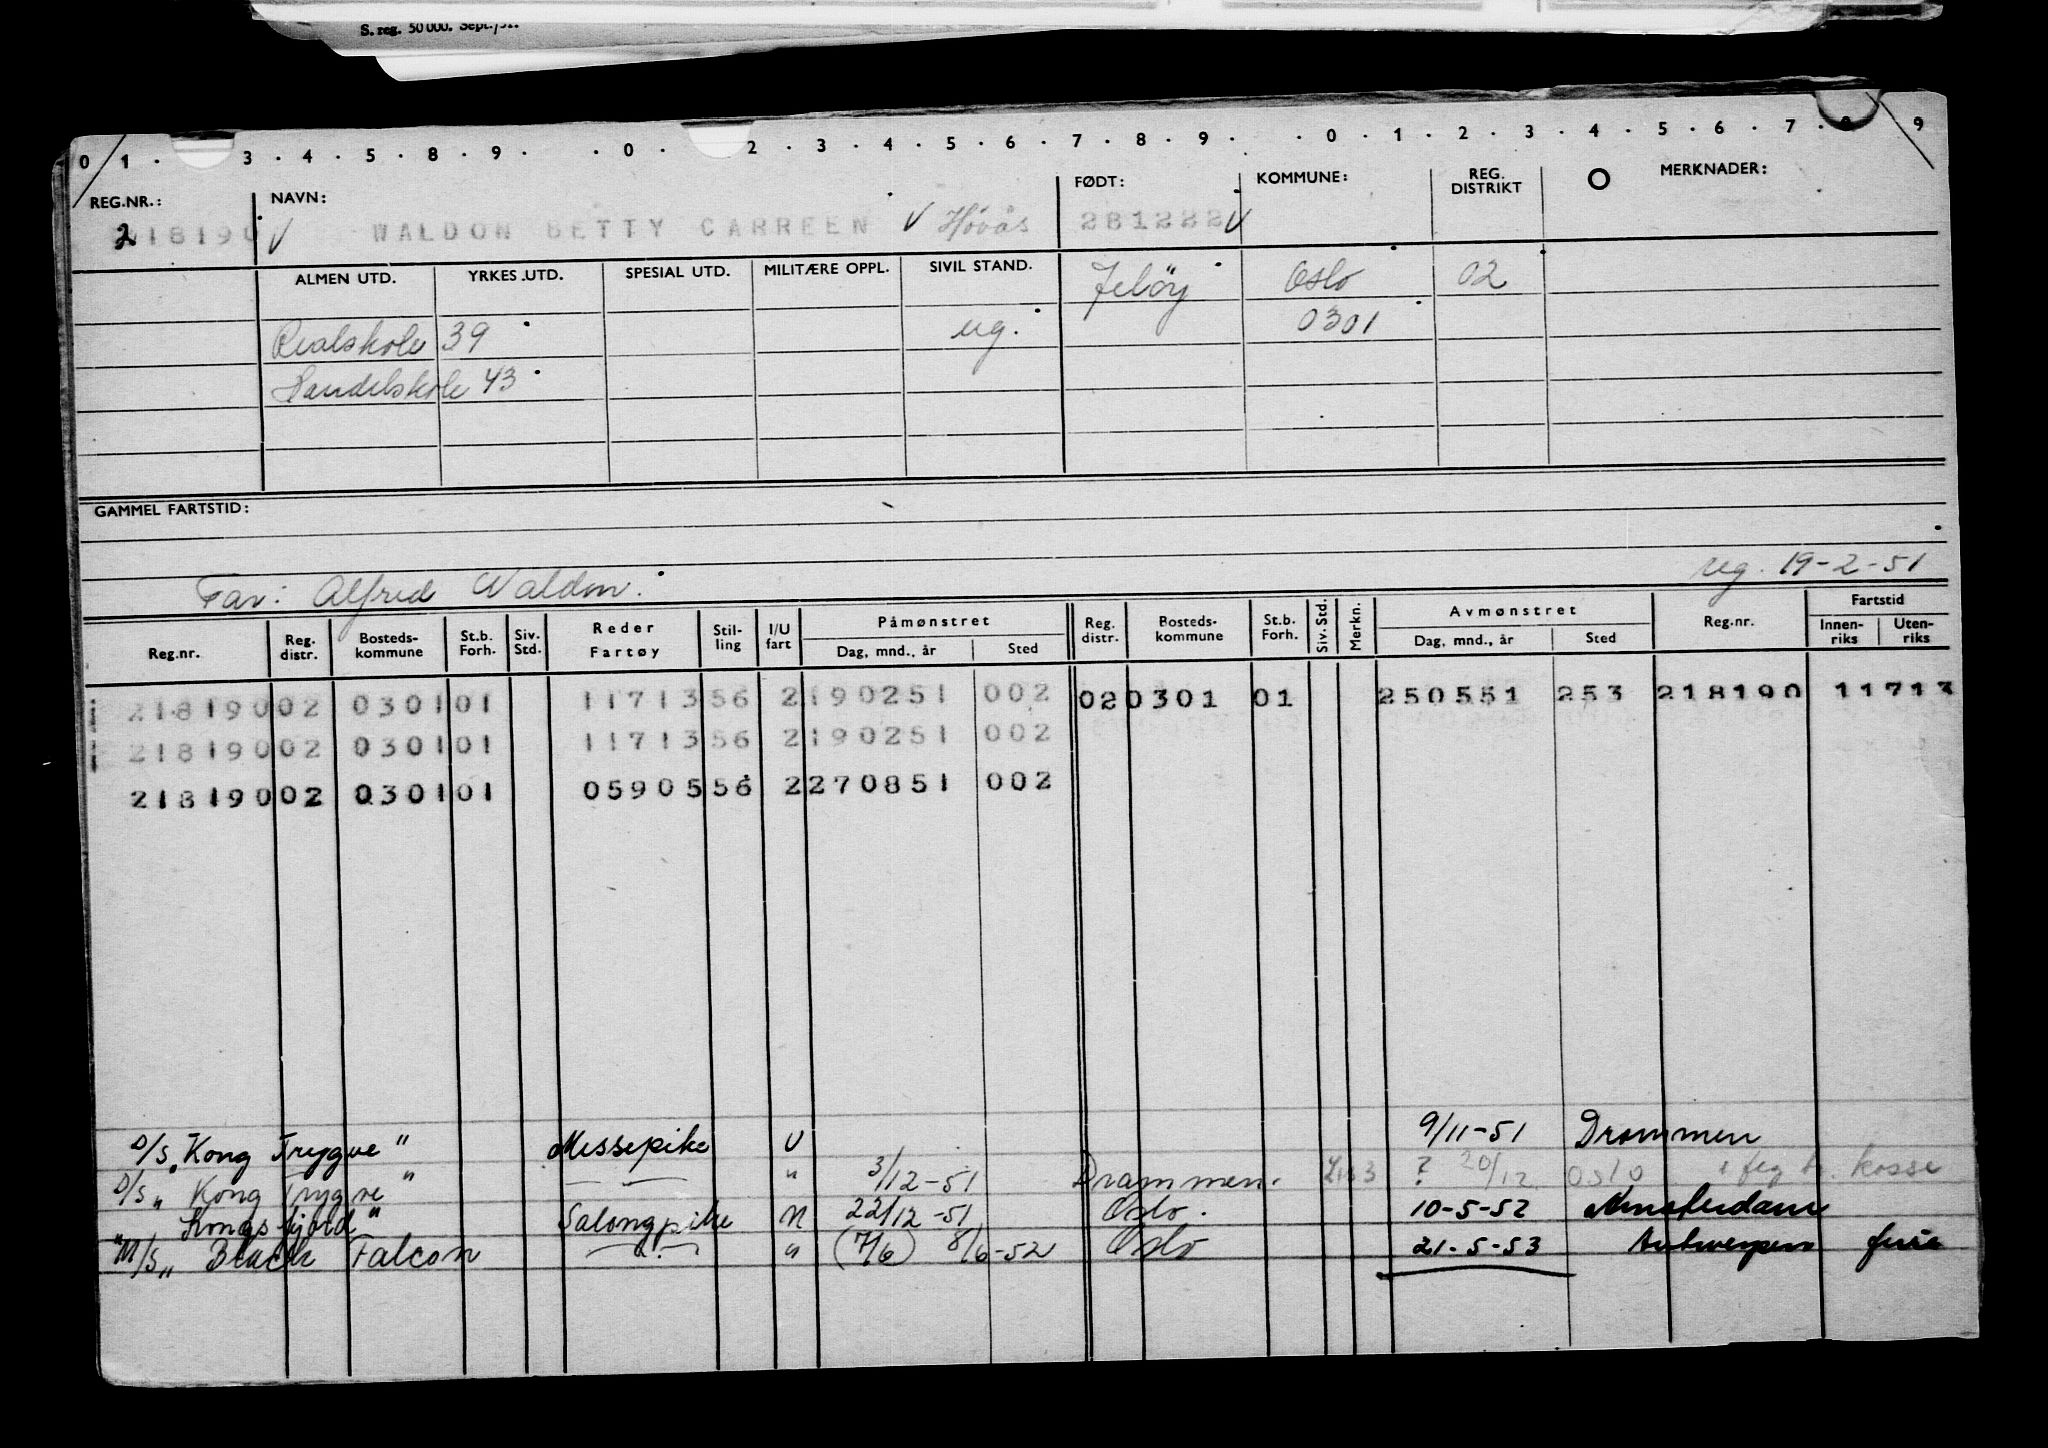 S. reg. 50 000. Sept./51.
0 1 . 3 . 4 . 5 . 8 . 9 . . 0 . 2 . 3 . 4 . 5 . 6 . 7 . 8 . 9 . . 0 . 1 . 2 . 3 . 4 . 5 . 6 . 7 . 8 . 9
REG.NR.: NAVN: FØDT: KOMMUNE: REG. DISTRIKT MERKNADER:
218190 √ WALDON BETTY CARREEN √ Høvås 281222 √
ALMEN UTD. YRKES.UTD. SPESIAL UTD. MILITÆRE OPPL. SIVIL STAND. Jeløy Oslo 02
Realskole 39 ug. 0301
Handelskole 43
GAMMEL FARTSTID:
Far: Alfred Waldon. reg. 19-2-51
Reg.nr. Reg. distr. Bosteds-kommune St.b. Forh. Siv. Std. Reder Fartøy Stil-ling I/U fart Påmønstret Dag, mnd., år Sted Reg. distr. Bosteds-kommune St.b. Forh. Siv. Std. Merkn. Avmønstret Dag, mnd., år Sted Reg.nr. Fartstid Innen-riks Uten-riks
218190 02 0301 01 11713 56 2 190251 002 02 0301 01 250551 253 218190 11713
218190 02 0301 01 11713 56 2 190251 002
218190 02 0301 01 05905 56 2 270851 002
D/S „Kong Trygve" Messepike U 9/11-51 Drammen
D/S „Kong Trygve" — — " 3/12-51 Drammen. ? 20/12 Oslo
"Kongsfjord" Salongpike N 22/12-51 Oslo. 10-5-52 Amsterdam
M/S „Black Falcon — " — " (7/6) 8/6-52 Oslo 21-5-53 Antwerpen